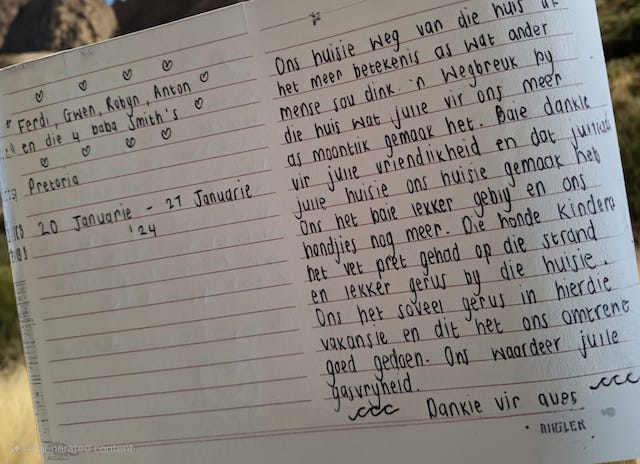 " Ferdi, Gwen, Robyn, Anton
en die 4 baba Smith's
Pretoria
20 Januarie - 21 Januarie
'24
Ons huisie weg van die huis
het meer betekenis as wat ander
mense sou dink. 'n Wegbreuk by
die huis wat julle vir ons meer
as moontlik gemaak het. Baie dankie
vir julle vriendlikheid en dat
julle huisie ons huisie gemaak het
Ons het baie lekker en ons
hondjies nog meer. Die honde kinders
het vet pret gehad op die strand
en lekker gerus by die huisie.
Ons het soveel gerus in hierdie
vakansie en dit het ons omtrent
goed gedoen. Ons waardeer julle
gasvryheid.
Dankie vir
generated content